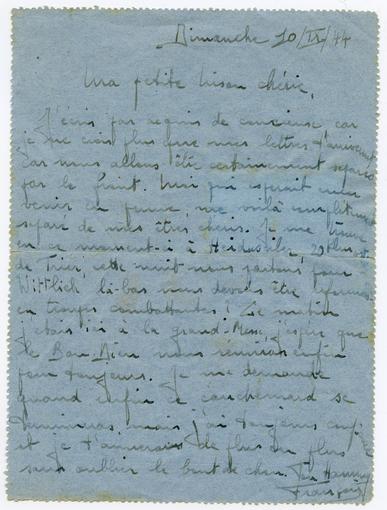 Dimanche 10/IX/44
Ma petite Mison chérie,
J'écris par acquis de conscience car
je ne crois plus que mes lettres t'arriveront
car nous allons être certainement séparés
par le front. Moi qui espérait
venir en, me voilà complètement
séparé de mes êtres chers. Je me trouve
en ce moment-ci à 29 klms
de Trier, cette nuit nous partons pour
Wittlich là-bas nous devons être
en troupes combattantes! Ce matin
j'étais ici à la grand-Messe, j'espère que
le Bon Dieu nous réunira enfin
pour toujours. Je me demande
quand enfin ce cauchemard se
terminera, mais j'ai toujours
et je t'aimerai de plus en plus
sans oublier le bout de chou. Ton